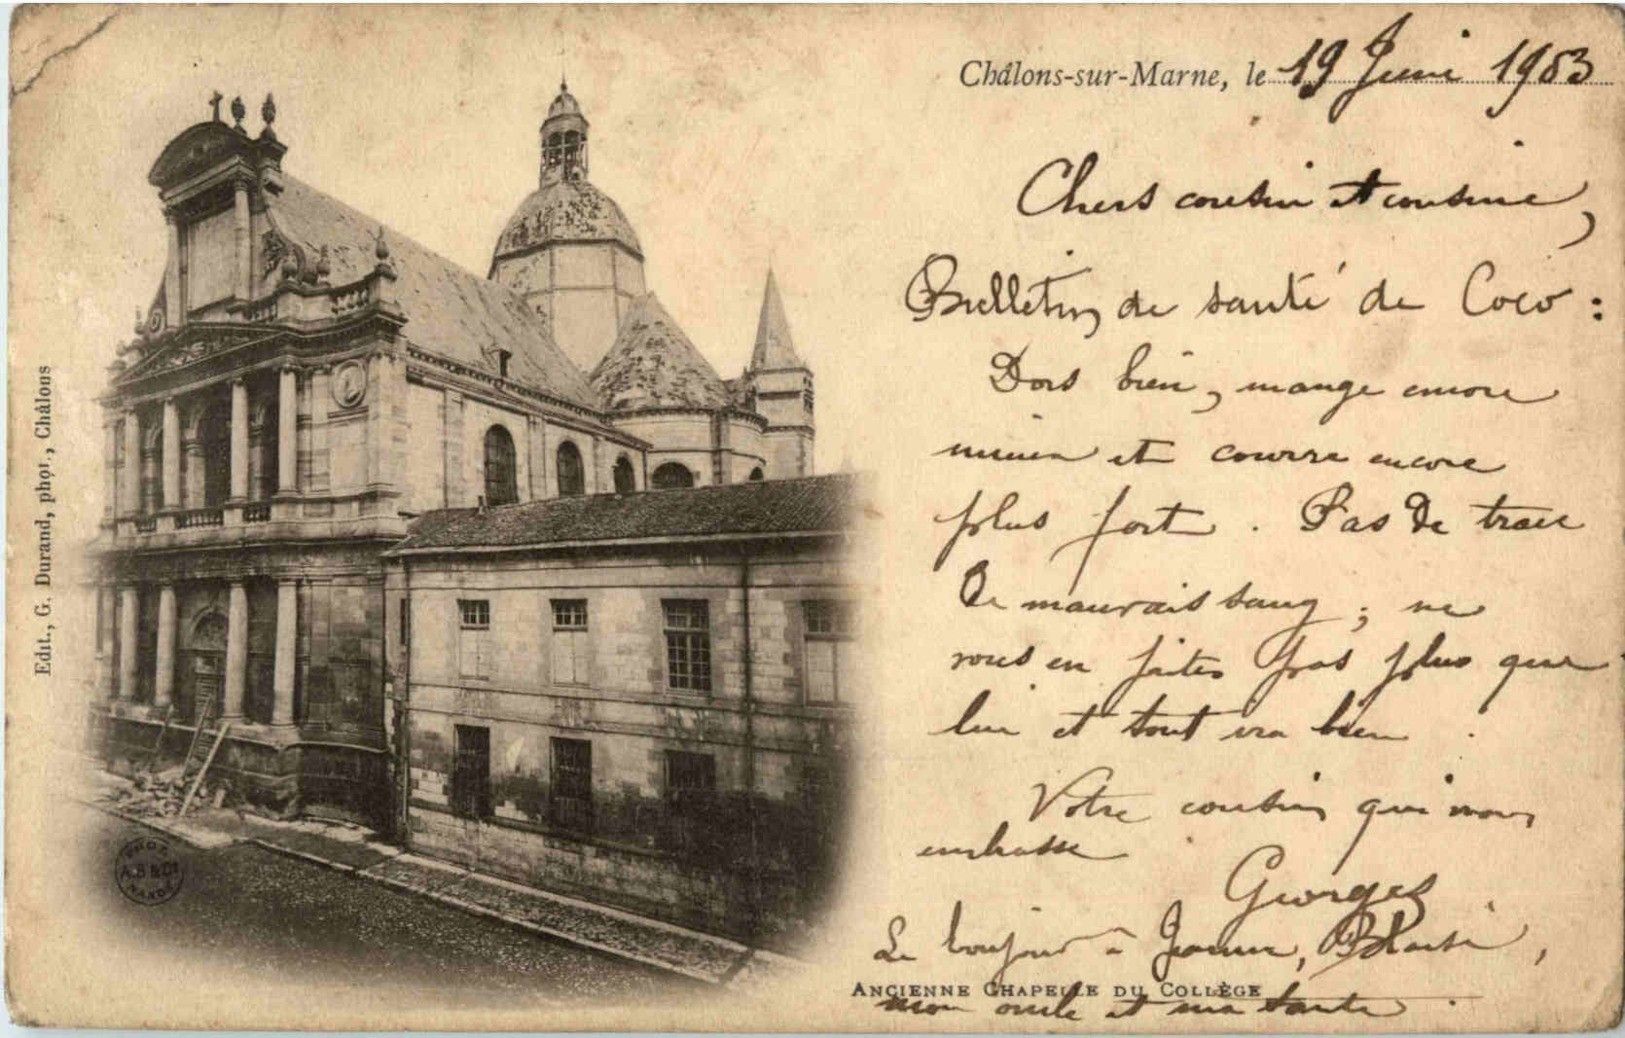 Châlons-sur-Marne, le 19 Juin 1903
Chers cousin et cousine,
Bulletin de santé de Coco :
Dors bien, mange encore
mieux et courre encore
plus fort. Pas De trace
De mauvais sang ; ne
vous en faites pas plus que
lui et tout ira bien.
Votre cousin qui vous
embrasse
Georges
Le bonjour à Jeanne,
mon oncle et ma tante
ANCIENNE CHAPELLE DU COLLÈGE
Edit., G. Durand, phot., Châlons
PHOT.
A.B & Cie
NANCY